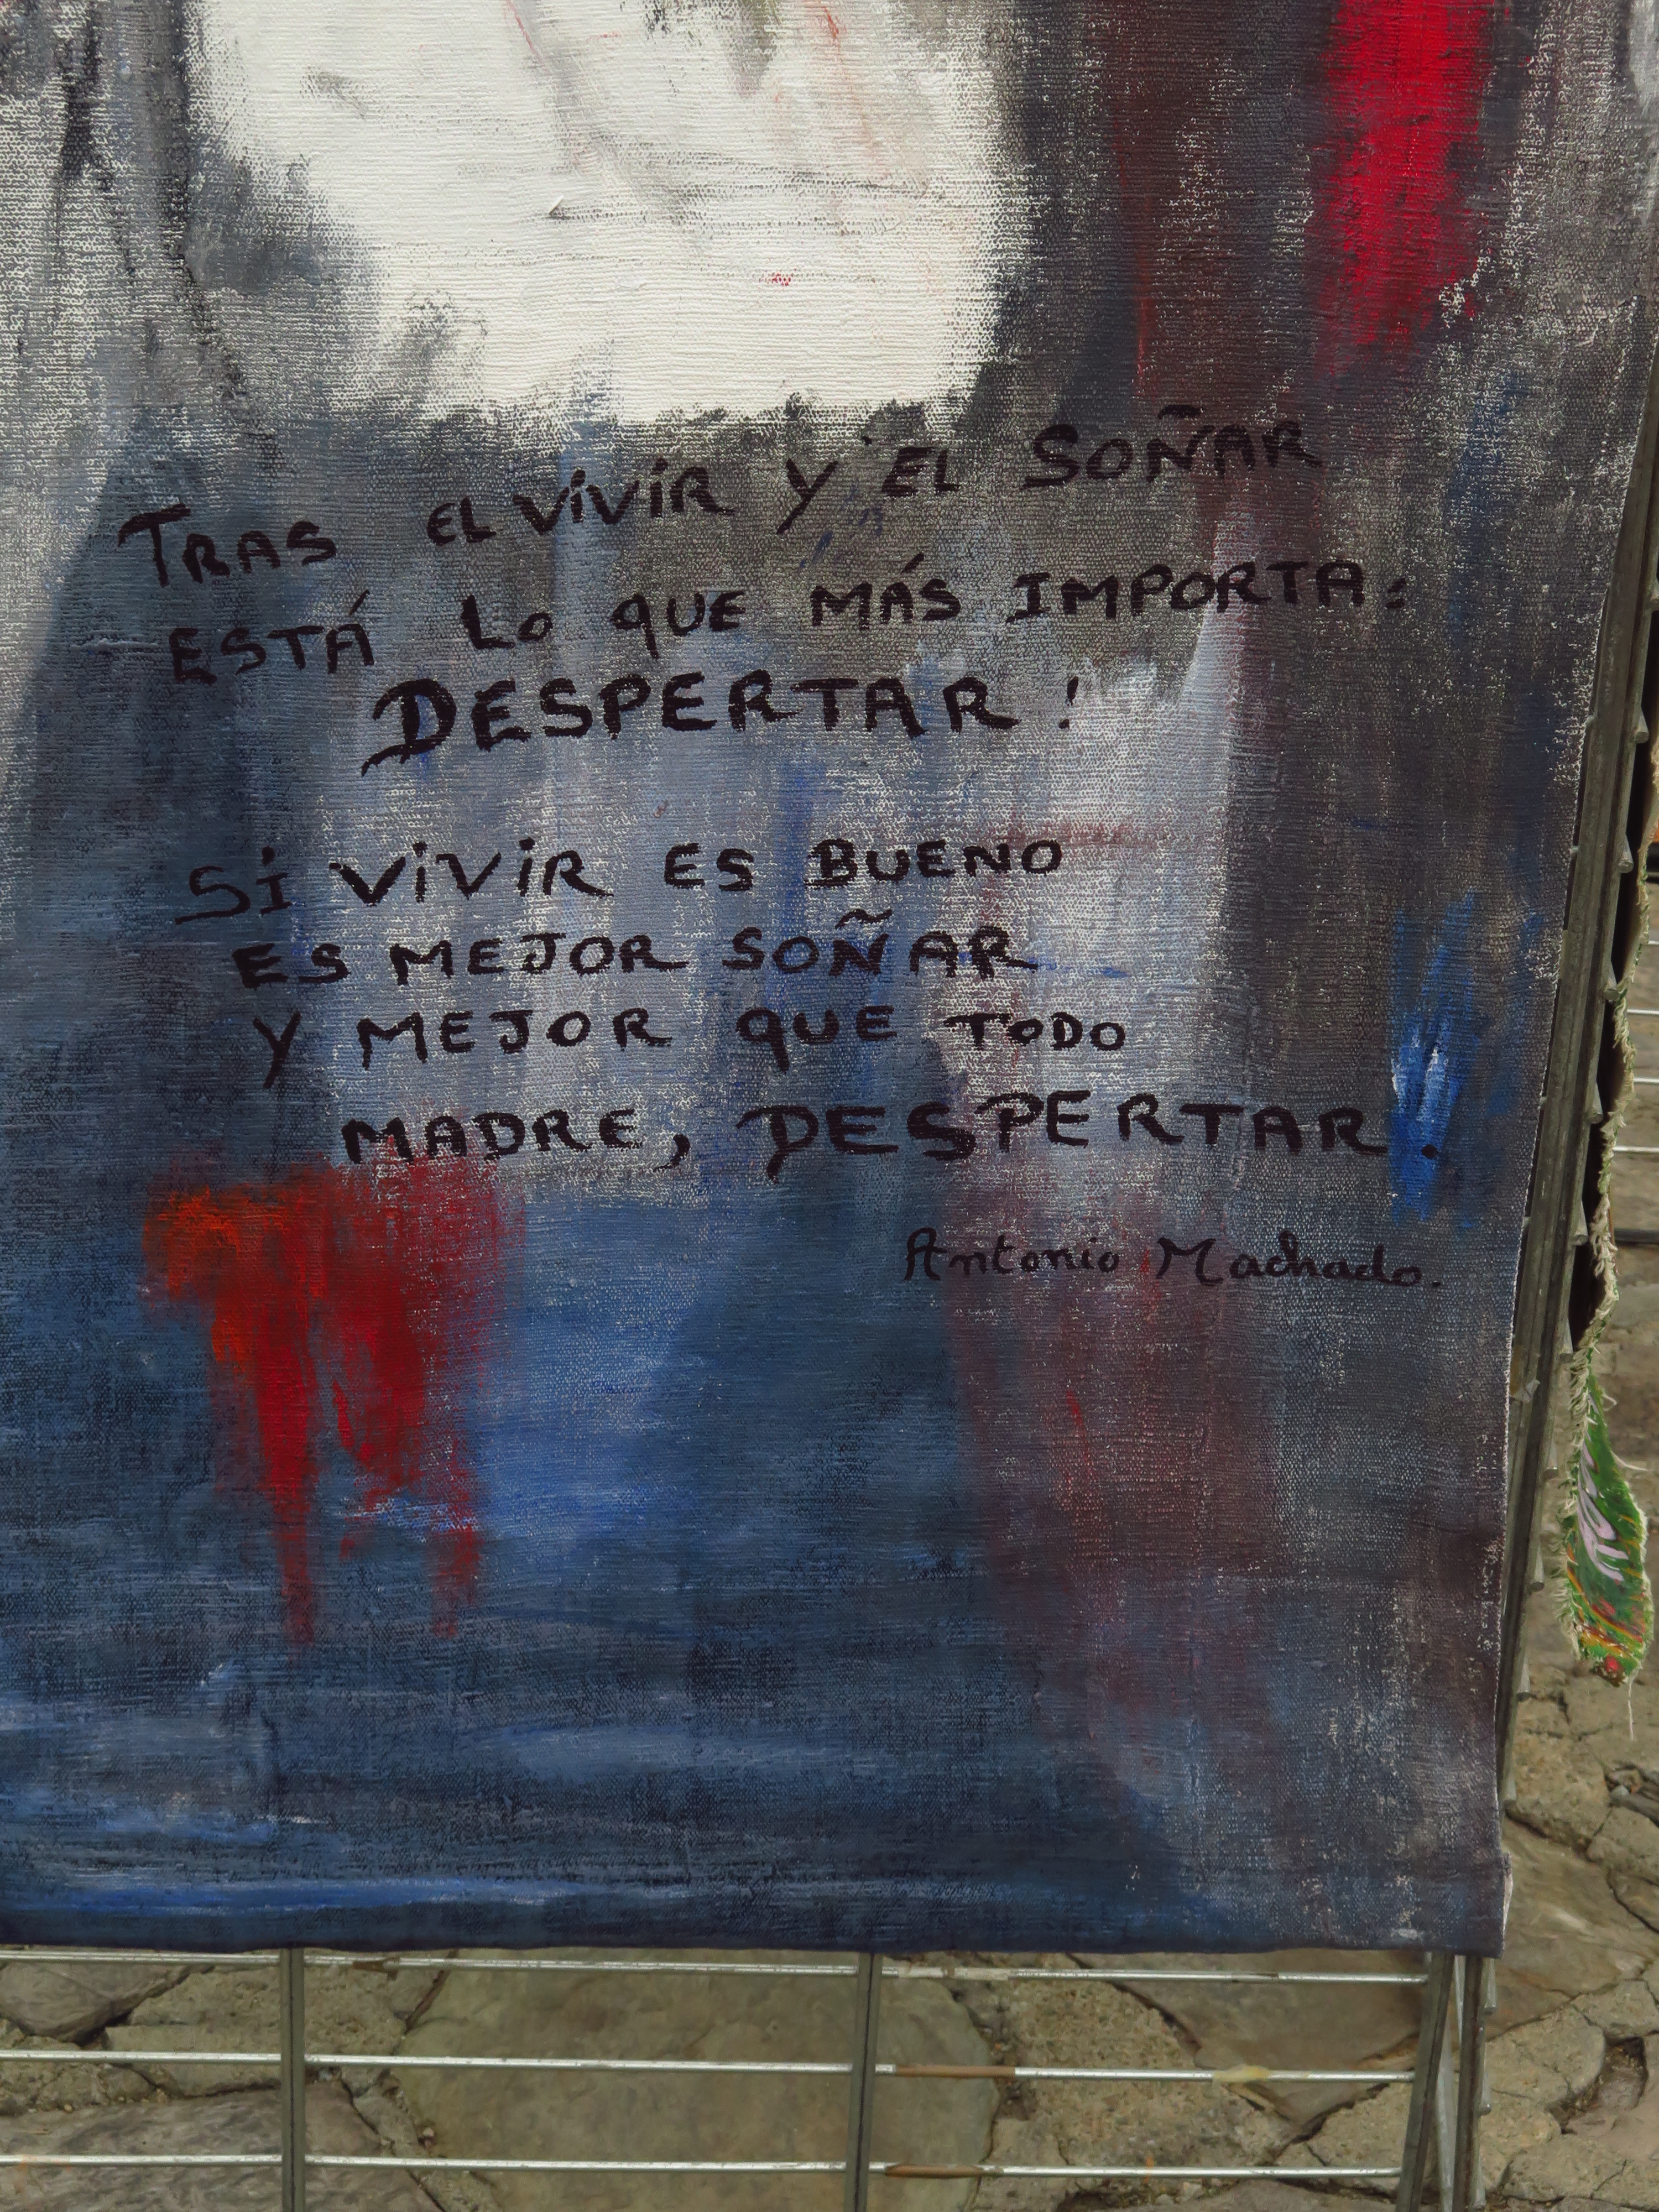 TRAS EL VIVIR Y EL SOÑAR
ESTÁ LO QUE MÁS IMPORTA:
DESPERTAR!
SI VIVIR ES BUENO
ES MEJOR SOÑAR
Y MEJOR QUE TODO
MADRE, DESPERTAR.
Antonio Machado.